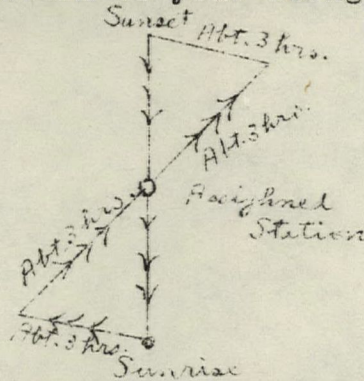 Sunset
Abt. 3 hrs.
Abt. 3 hrs.
Assighned
Station
Abt. 3 hrs.
Abt. 3 hrs.
Sunrise